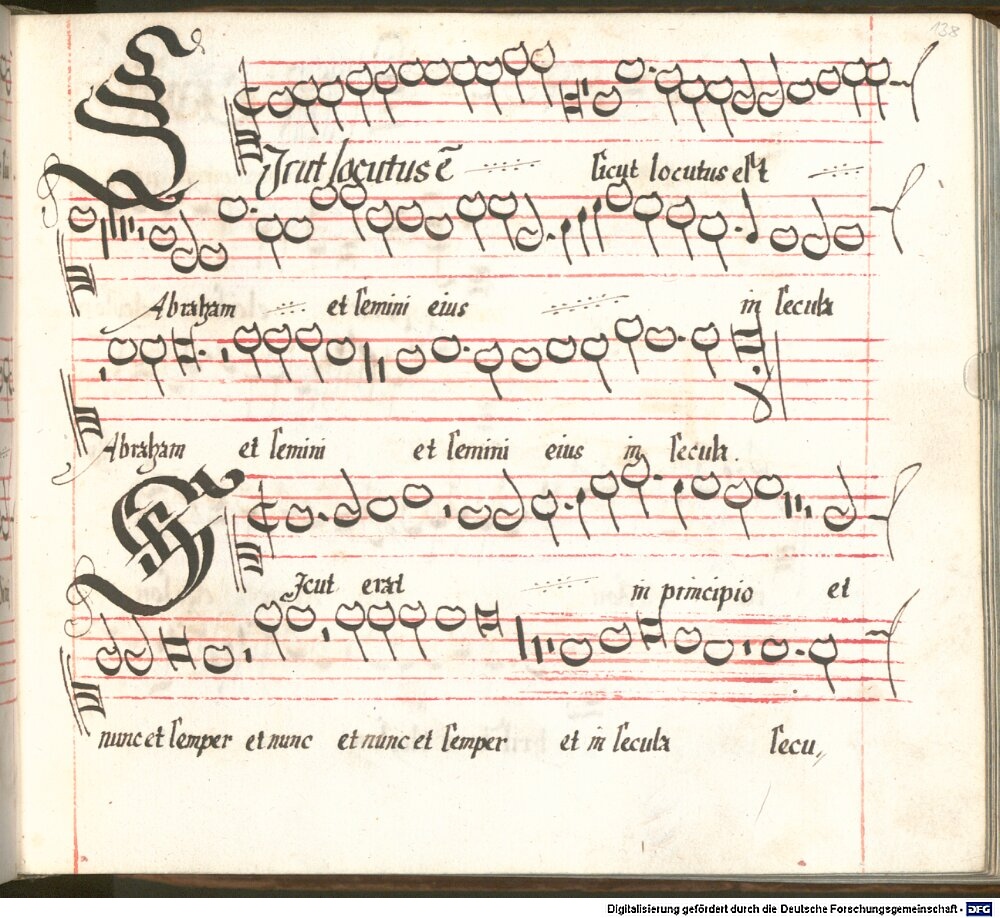 138
Sicut locutus ē sicut locutus est
Abraham et semini eius in secula
Abraham et semini et semini eius in secula.
Sicut erat in principio et
nunc et semper et nunc et nunc et semper et in secula secu,,
Digitalisierung gefördert durch die Deutsche Forschungsgemeinschaft - DFG